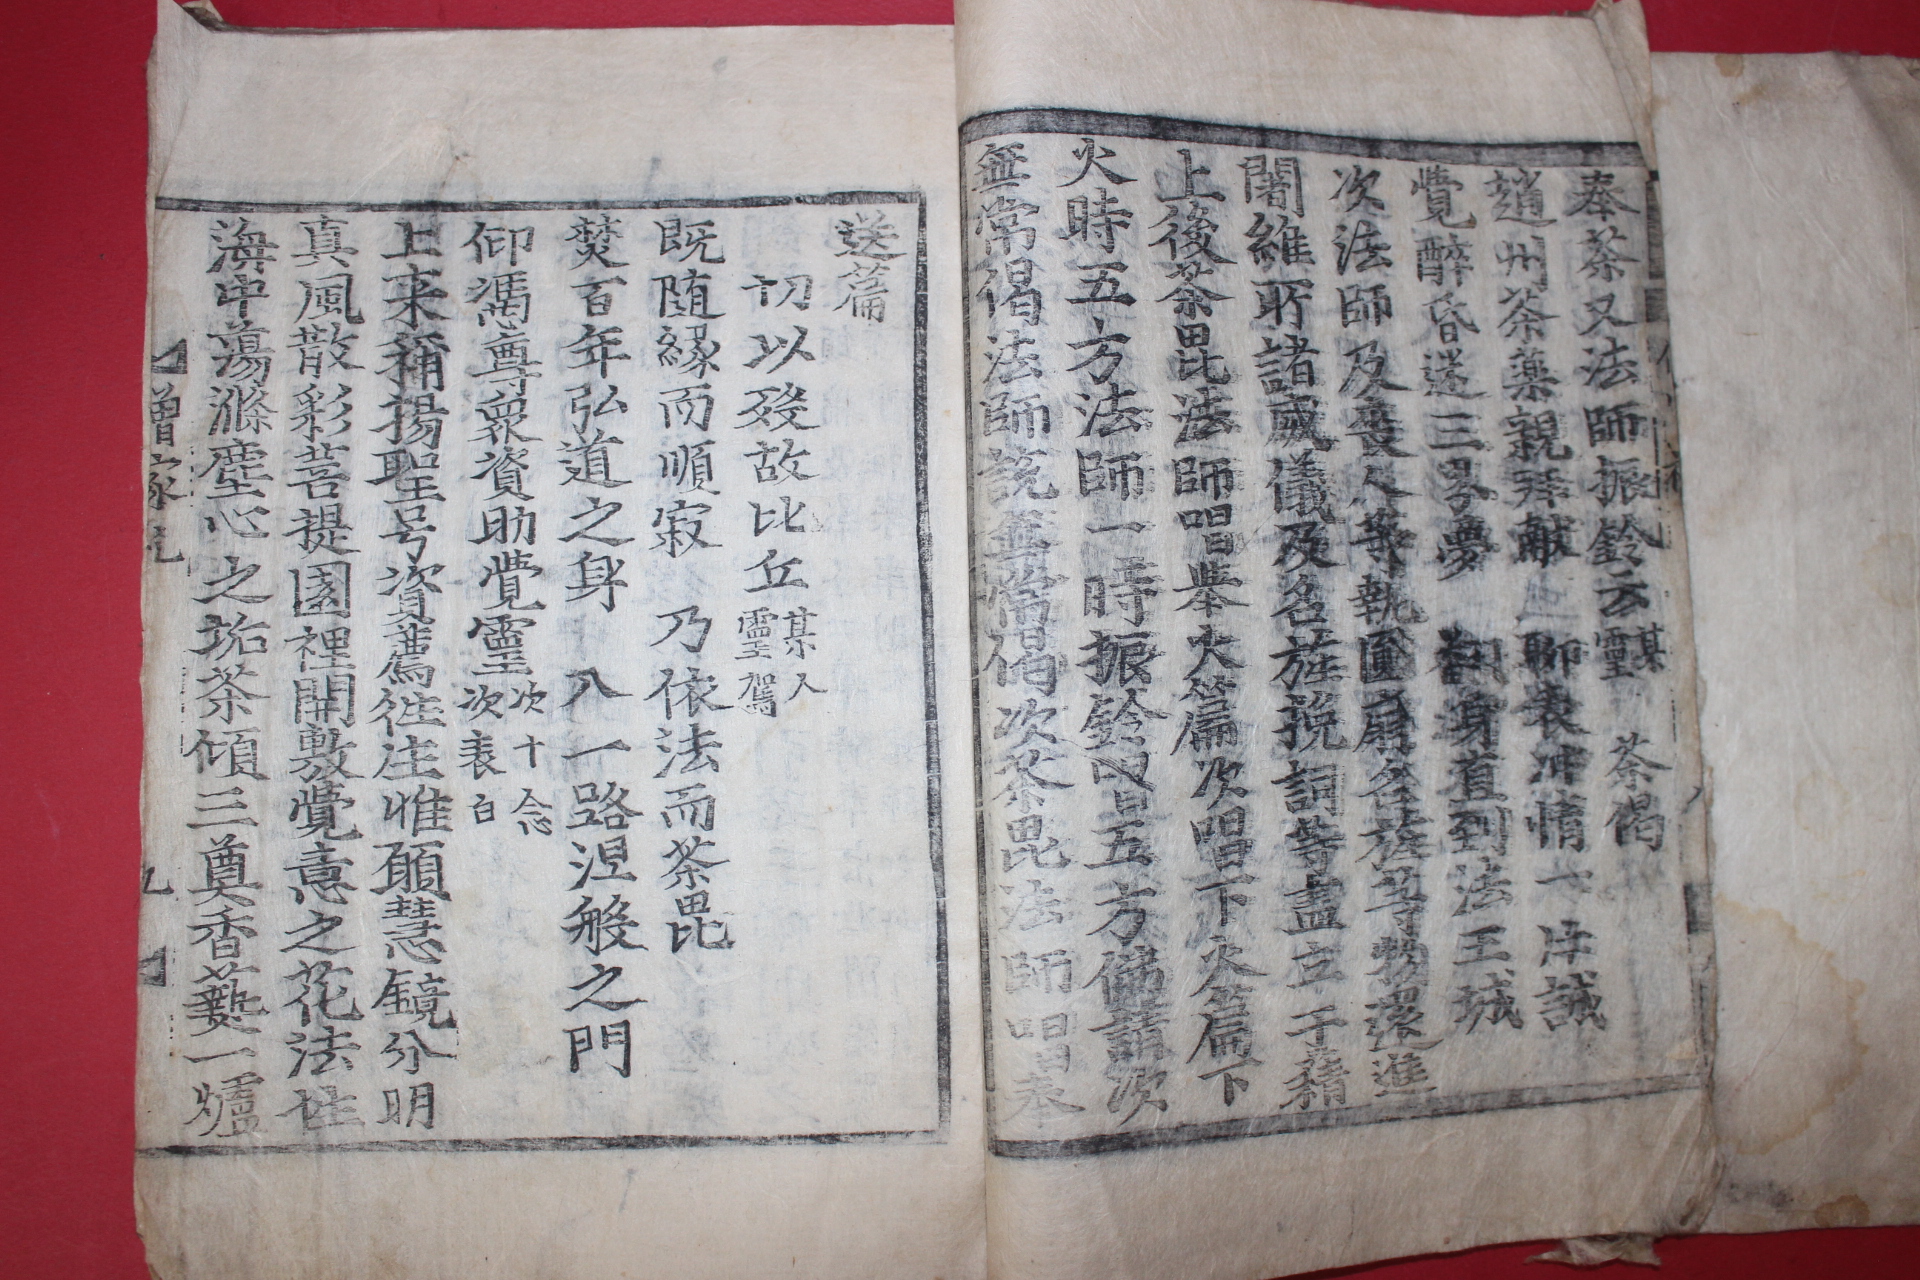 奉茶又法師振鈴云某靈 茶偈
趙州茶藥親拜献 聊表冲情一片誠
覺醉昏迷三界夢 翻身直到法王城
次法師及喪人等執圓扇名旌等物還進
闍維所諸威儀及名旌挽詞等盡立于藉
上後茶毘法師唱举火篇次唱下火篇下
火時五方法師一時振鈴唱五方佛請次
無常偈法師說無常偈次茶毘法師唱奉
送篇
切以歿故比丘某人靈駕
既随緣而順寂 乃依法而茶毘
焚百年弘道之身 入一路涅般之門
仰憑尊衆資助覺靈次十念次表白
上来稱揚聖号資薦往生惟願慧鏡分明
真風散彩菩提園裡開敷覺意之花法性
海中蕩滌塵心之垢茶傾三奠香爇一爐
僧家
九